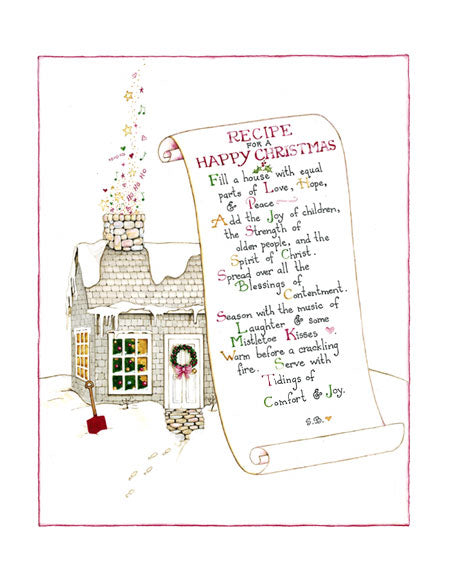 RECIPE
FOR A
HAPPY CHRISTMAS
Fill a house with equal
parts of Love, Hope,
& Peace
Add the Joy of children,
the Strength of
older people, and the
Spirit of Christ.
Spread over all the
Blessings of
Contentment.
Season with the music of
Laughter & some
Mistletoe Kisses
Warm before a crackling
fire. Serve with
Tidings of
Comfort & Joy.
S.B.
HO HO HO